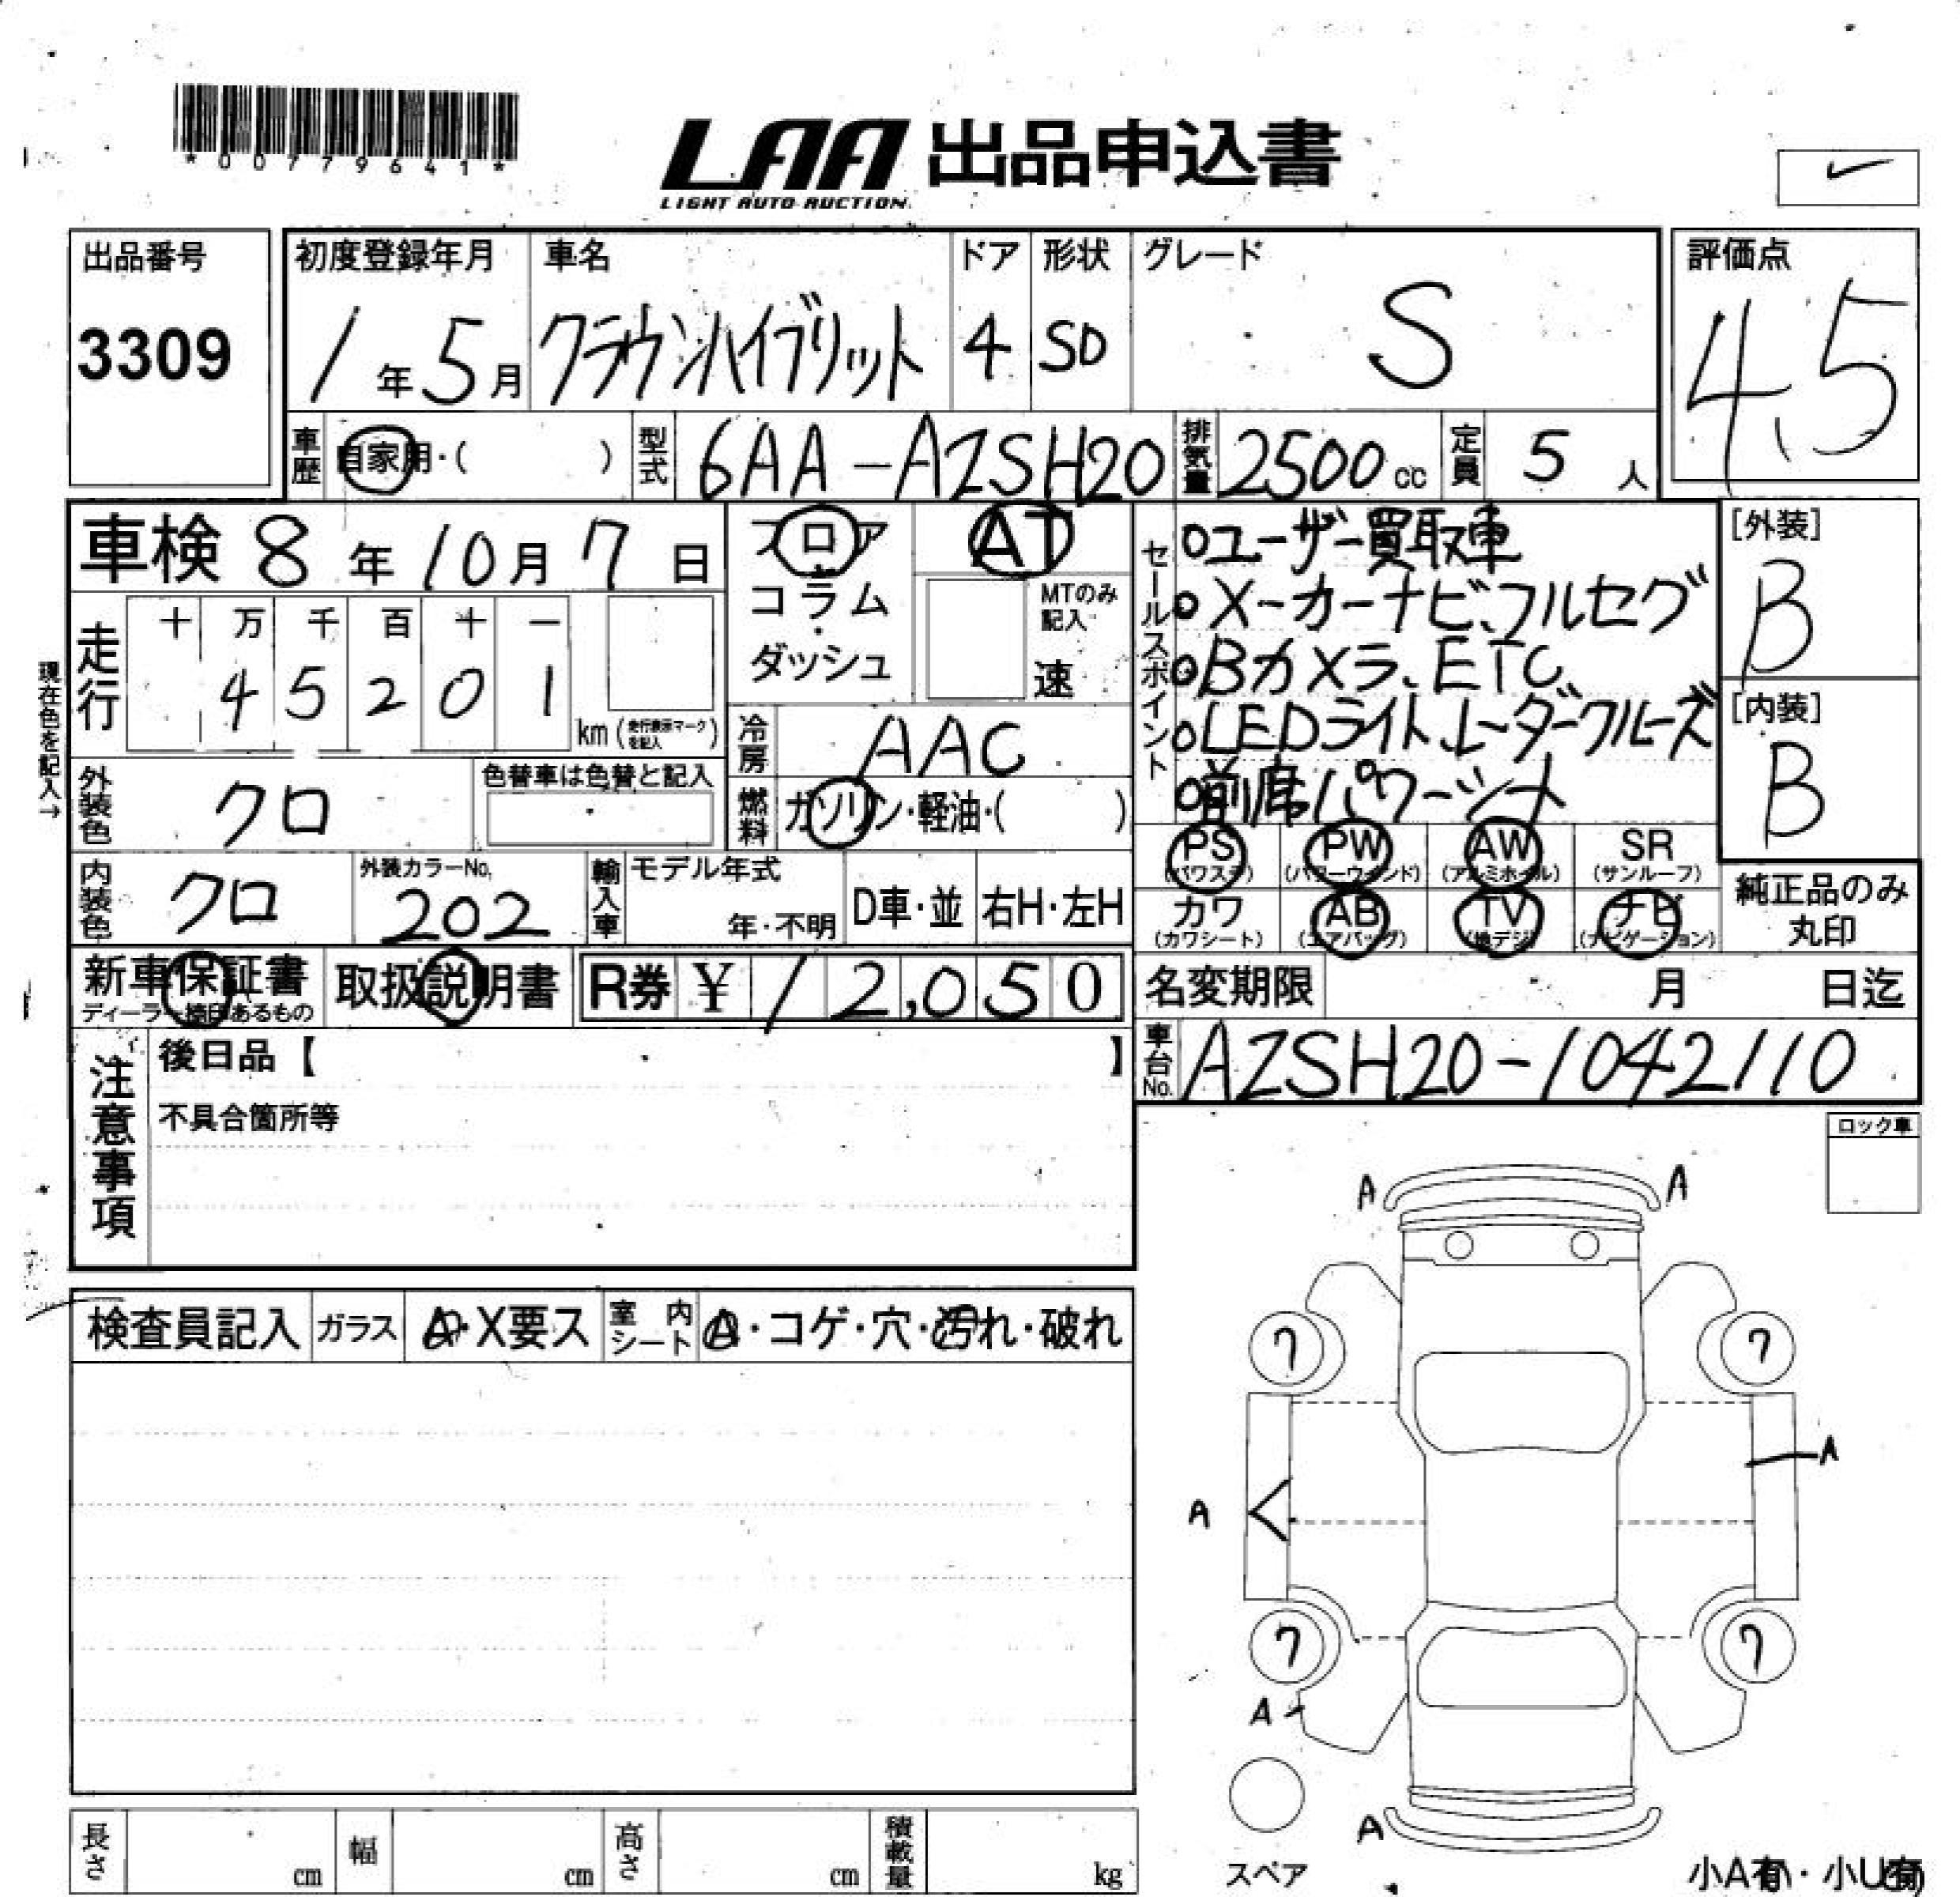 *00779641*
LAA 出品申込書
LIGHT AUTO AUCTION
出品番号
3309
初度登録年月
1年5月
車名
クラウンハイブリット
ドア
4
形状
SD
グレード
S
評価点
4.5
車歴
自家用・( )
型式
6AA-AZSH20
排気量
2500cc
定員
5人
車検 8年10月7日
フロア
コラム
・
ダッシュ
AT
MTのみ記入
速
セールスポイント
○ユーザー買取車
○メーカーナビ、フルセグ
○Bカメラ、ETC
○LEDライト、レーダークルーズ
○前席パワーシート
[外装]
B
[内装]
B
現在色を記入→
走行
十 万 千 百 十 一
4 5 2 0 1
km(走行表示マークを記入)
冷房
AAC
外装色
クロ
色替車は色替と記入
燃料
ガソリン・軽油・( )
PS (パワステ)
PW (パワーウインド)
AW (アルミホイル)
SR (サンルーフ)
カワ (カワシート)
AB (エアバッグ)
TV (地デジ)
ナビ (ナビゲーション)
純正品のみ丸印
内装色
クロ
外装カラーNo.
202
輸入車
モデル年式
年・不明
D車・並
右H・左H
新車保証書
ディーラー捺印あるもの
取扱説明書
R券 ¥12,050
名変期限 月 日迄
車台No.
AZSH20-1042110
注意事項
後日品【 】
不具合箇所等
ロック車
検査員記入
ガラス
A・X要ス
室内シート
A・コゲ・穴・汚れ・破れ
A A
7 7
A
A
7 7
A
A
スペア
長さ cm
幅 cm
高さ cm
積載量 kg
小A有・小U有